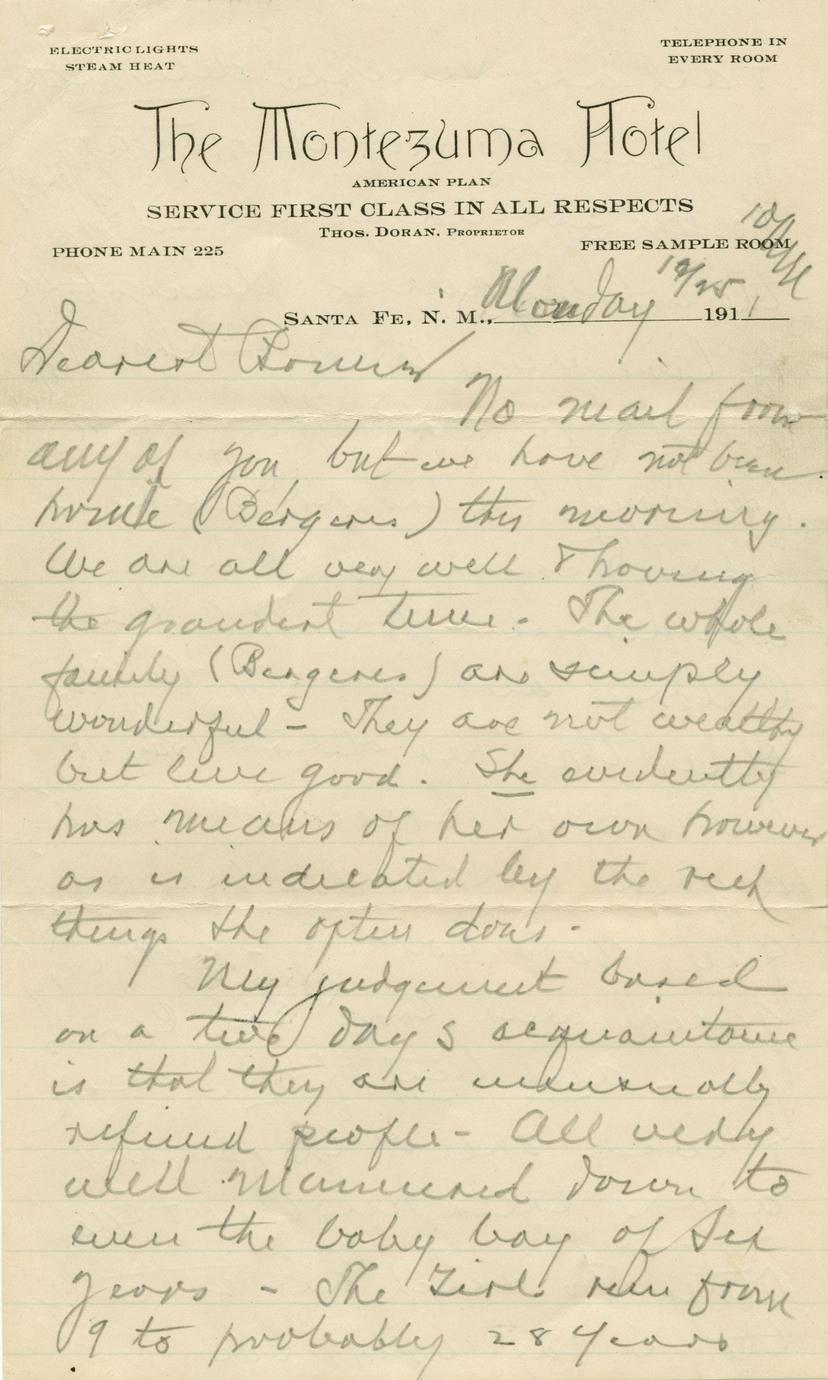 ELECTRIC LIGHTS
STEAM HEAT
TELEPHONE IN
EVERY ROOM
The Montezuma Hotel
AMERICAN PLAN
SERVICE FIRST CLASS IN ALL RESPECTS
THOS. DORAN. PROPRIETOR
PHONE MAIN 225
FREE SAMPLE ROOM
10
SANTA FE, N. M., Monday 12/25 1911
Dearest
No mail from
any of you but we have not been
home (Bergeres) this morning.
We are all very well & having
the grandest time - The whole
family (Bergeres) are simply
wonderful - They are not wealthy
but live good. She evidently
has means of her own however
as is indicated by the rich
things she often dons -
My judgement based
on a two days acquaintance
is that they are unusually
refined people - All very
well mannered down to
even the baby boy of six
years - The Girls run from
9 to probably 28 years